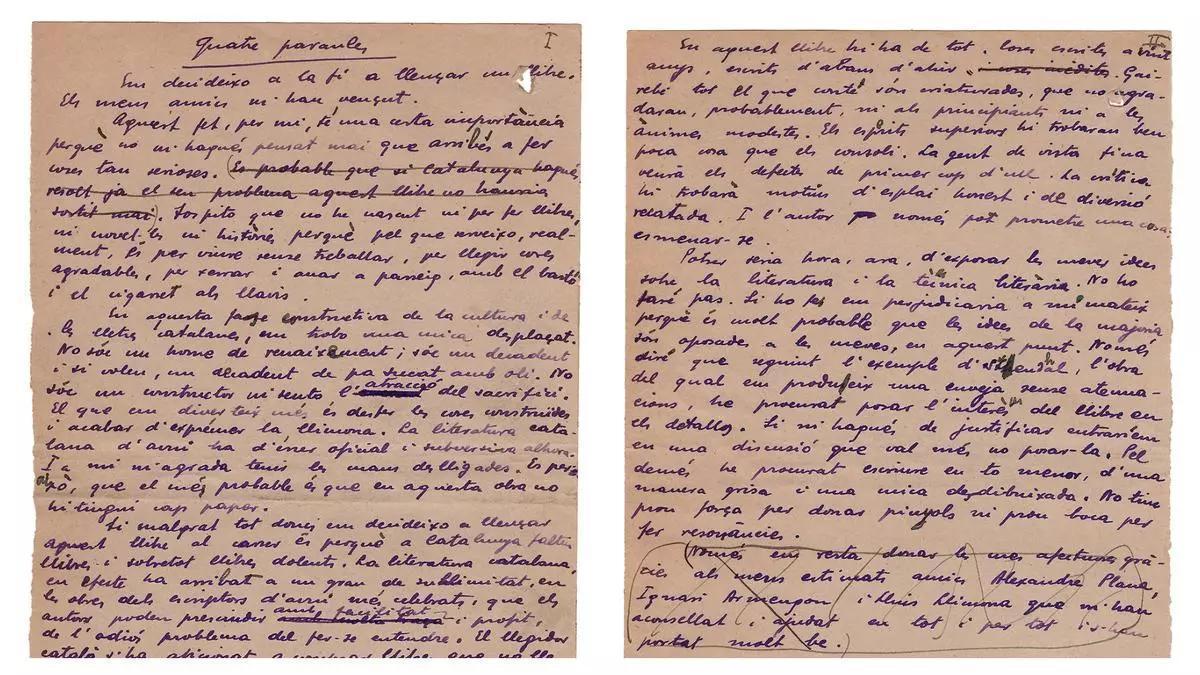 Quatre paraules
I
Em decideixo a la fi a llençar un llibre.
Els meus amics m'han vençut.
Aquest fet, per mi, té una certa importància
perquè no m'hagués pensat mai que arribés a fer
coses tan serioses. (Es probable que si Catalunya hagués
resolt ja el seu problema aquest llibre no hauria
sortit mai). Sospito que no he nascut ni per fer llibres,
ni novel·les ni històries perquè pel que serveixo, real-
ment, és per viure sense treballar, per llegir coses
agradables, per xerrar i anar a passeig, amb el bastó
i el cigarret als llavis.
En aquesta fase constructiva de la cultura i de
les lletres catalanes, em trobo una mica desplaçat.
No sóc un home de renaixement; sóc un decadent
i si volen, un decadent de pa sucat amb oli. No
sóc un constructor ni sento l'atracció del sacrifici.
El que em diverteix més és desfer les coses construïdes
i acabar d'exprémer la llimona. La literatura cata-
lana d'avui ha d'ésser oficial i subversiva alhora.
I a mi m'agrada tenir les mans deslligades. Es per
això, que el més probable és que en aquesta obra no
hi tingui cap paper.
Si malgrat tot doncs em decideixo a llençar
aquest llibre al carrer és perquè a Catalunya falten
llibres i sobretot llibres dolents. La literatura catalana,
en efecte ha arribat a un grau de sublimitat, en
les obres dels escriptors d'avui més celebrats, que els
autors poden prescindir amb facilitat i profit,
de l'odiós problema del fer-se entendre. El llegidor
català s'ha aficionat a comprar llibres que no
II
En aquest llibre hi ha de tot. Coses escrites a vint
anys, escrits d'abans d'ahir i coses inèdites. Gai-
rebé tot el que conté són criaturades, que no agra-
daran, probablement, ni als principiants ni a les
ànimes modestes. Els esperits superiors hi trobaran ben
poca cosa que els consoli. La gent de vista fina
veurà els defectes de primer cop d'ull. La crítica
hi trobarà motius d'esplai honest i de diversió
recatada. I l'autor només pot prometre una cosa:
esmenar-se.
Potser seria hora, ara, d'exposar les meves idees
sobre la literatura i la tècnica literària. No ho
faré pas. Si ho fes em perjudicaria a mi mateix
perquè és molt probable que les idees de la majoria
són oposades a les meves, en aquest punt. Només
diré que seguint l'exemple d'Stendhal, l'obra
del qual em produeix una enveja sense atenua-
cions, he procurat posar l'interès del llibre en
els detalls. Si m'hagués de justificar entraríem
en una discusió que val més no posar-la. Pel
demés he procurat escriure en to menor, d'una
manera grisa i una mica desdibuixada. No tinc
prou força per donar pinyols ni prou boca per
fer resonàncies.
(Només em resta donar les més afectuoses grà-
cies als meus estimats amics Alexandre Plana,
Ignasi Armengou i Lluís Llimona que m'han
aconsellat i ajudat en tot i per tot i s'han
portat molt be.)